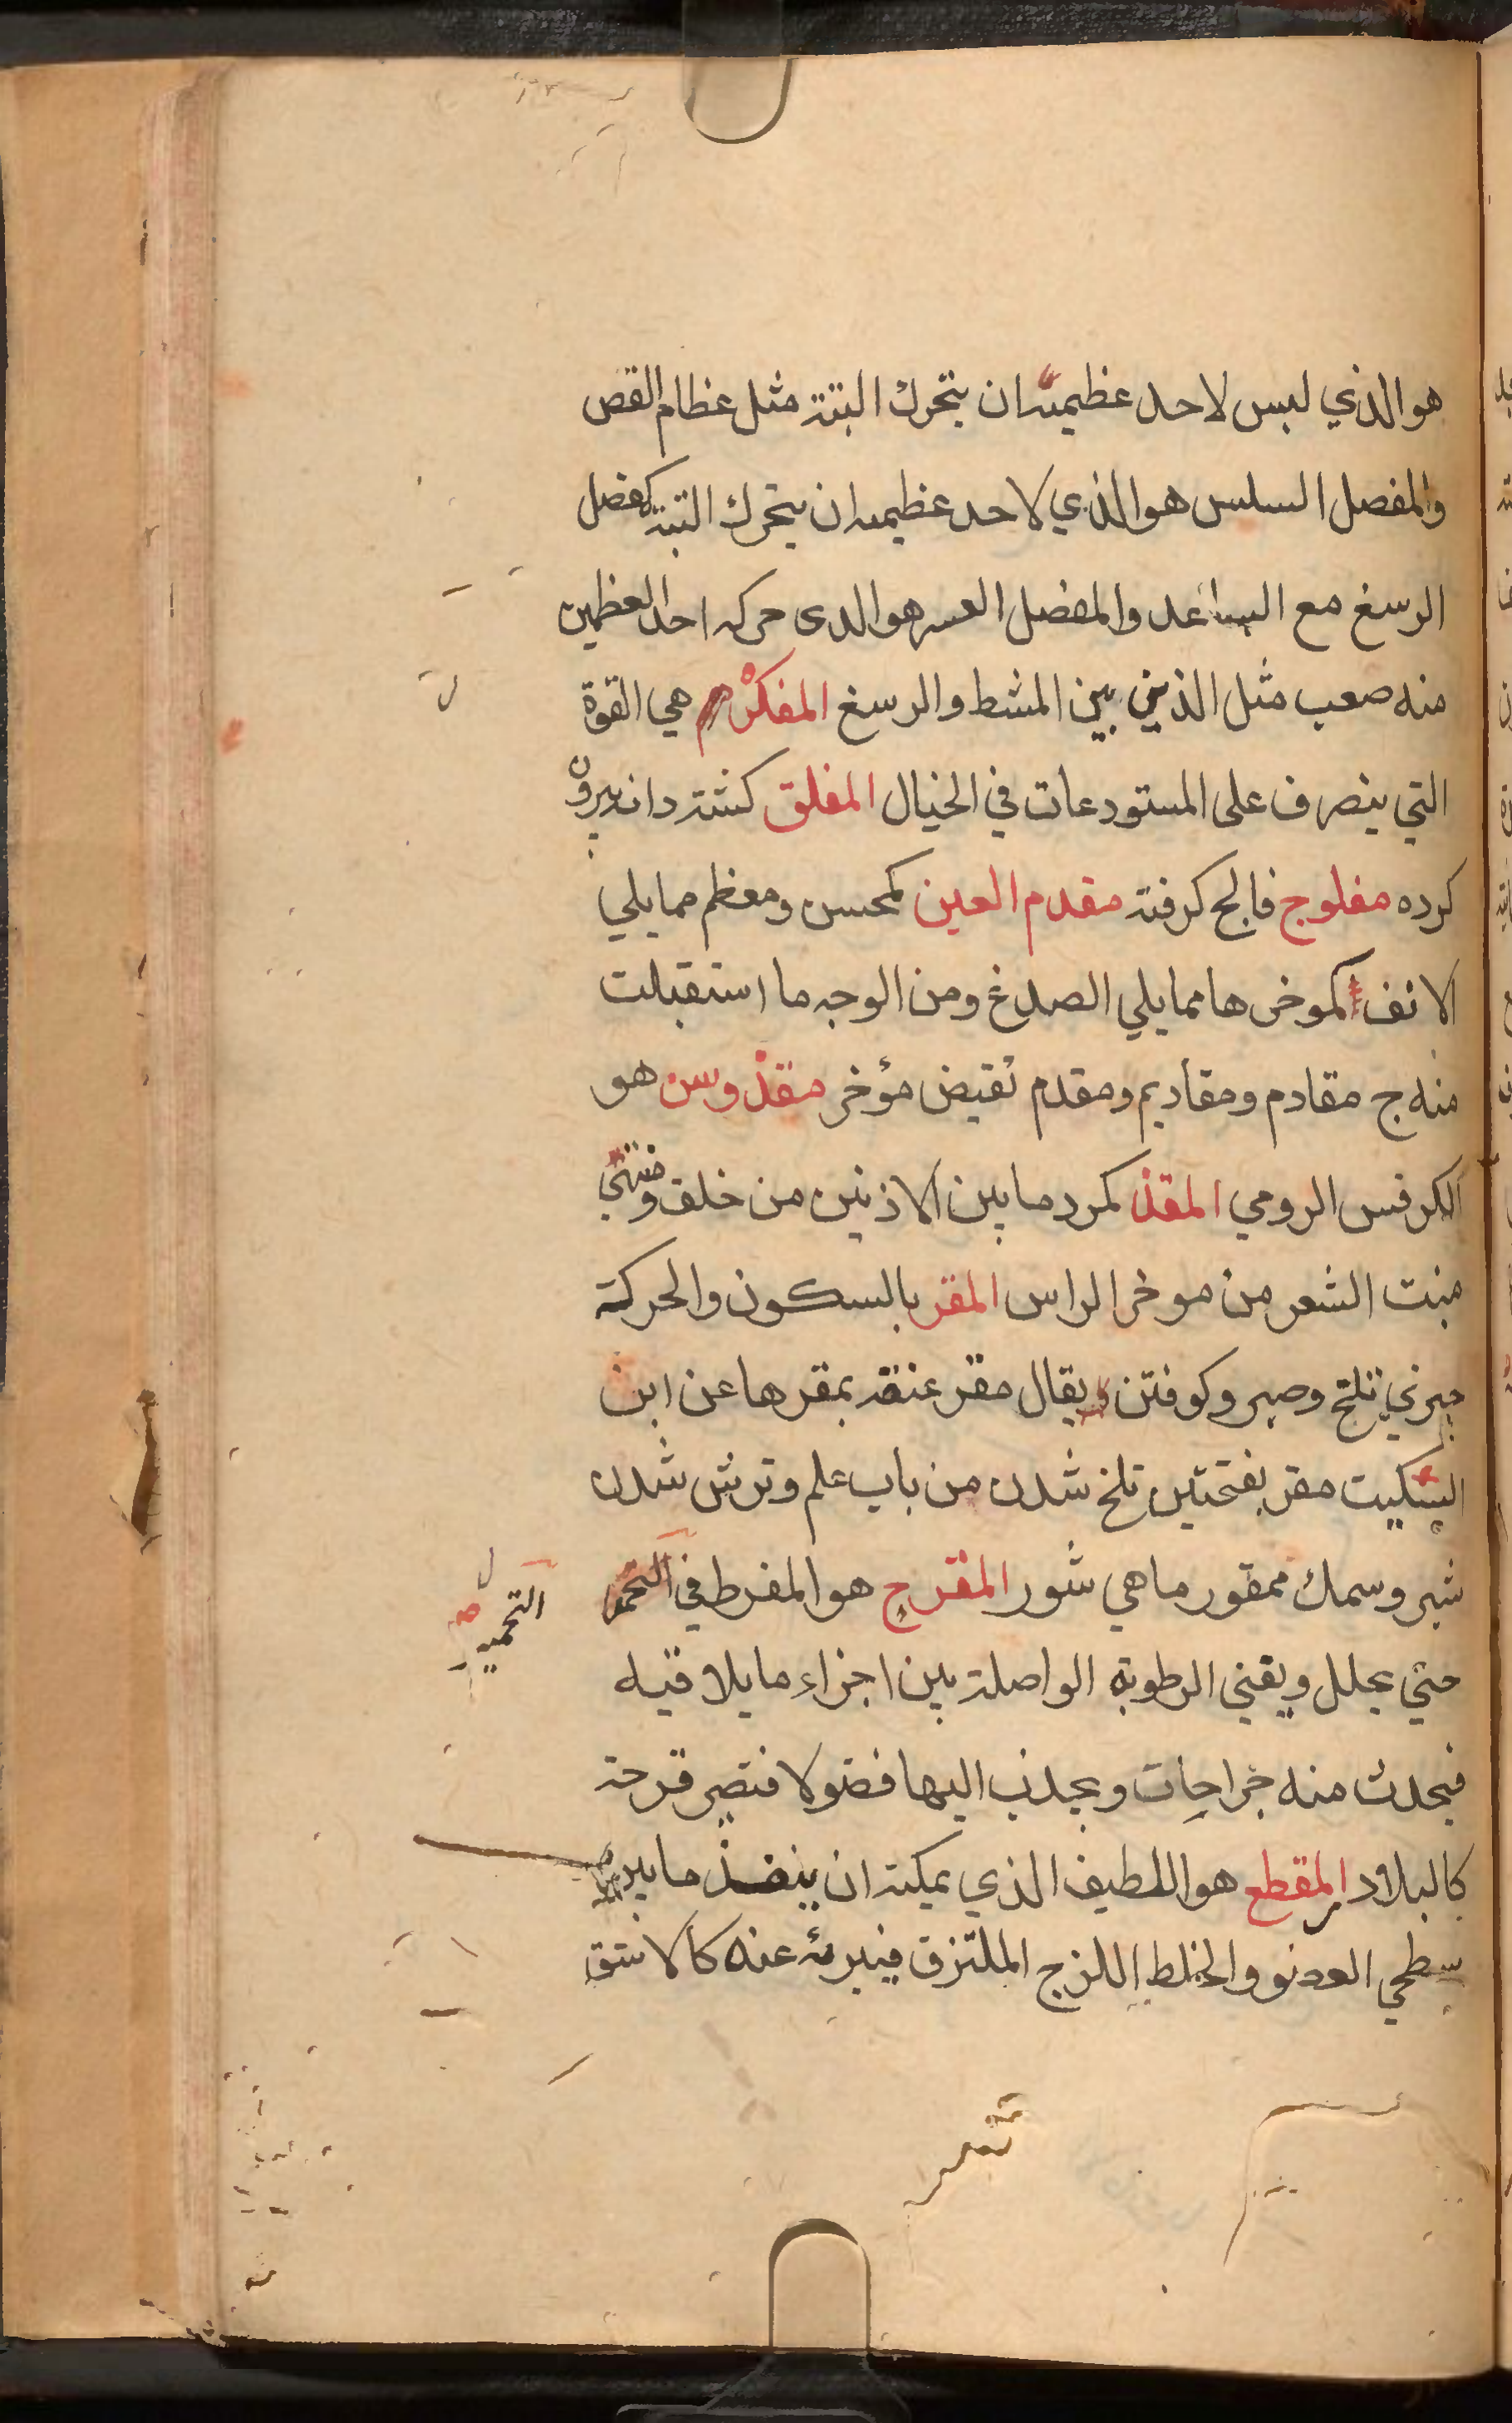 هو الذي ليس لاحد عظيمه ان يتحرك البتة مثل عظام القص
والمفصل السلس هو الذي لاحد عظيمه ان يتحرك البتة كمفصل
الرسغ مع الساعد والمفصل العسر هو الذى حركه احد العظمين
منه صعب مثل الذين بين المشط والرسغ المفكرة هي القوة
التي ينصرف على المستودعات في الخيال المفلق كشته دانه بيرون
كرده مفلوج فالج كرفته مقدم العين كمحسن ومعظم مما يلي
الانف كموخرها مما يلي الصدغ ومن الوجه ما استقبلت
منه ج مقادم ومقاديم ومقدم نقيض مؤخر مقذوس هو
الكرفس الرومي المقذ كمرد ما بين الاذنين من خلف ومنتهى
منبت الشعر من موخر الراس المقر بالسكون والحركة
جيزي تلخ وصبر وكوفتن ويقال مقر عنقه بمقرها عن ابن
السكيت مقر بفتحتين تلخ شدن من باب علم وترش شدن
شير وسمك ممقور ماهي شور المقرح هو المفرط في
التحمير
حتي يحلل ويفني الرطوبة الواصلة بين اجزاء ما يلاقيه
فيحدث منه جراحات ويجذب اليها فضولا فتصير قرحة
كالبلادر المقطع هو اللطيف الذي يمكنه ان ينفذ ما بين
سطحي العضو والخلط اللزج الملتزق فيبريه عنه كالاشق